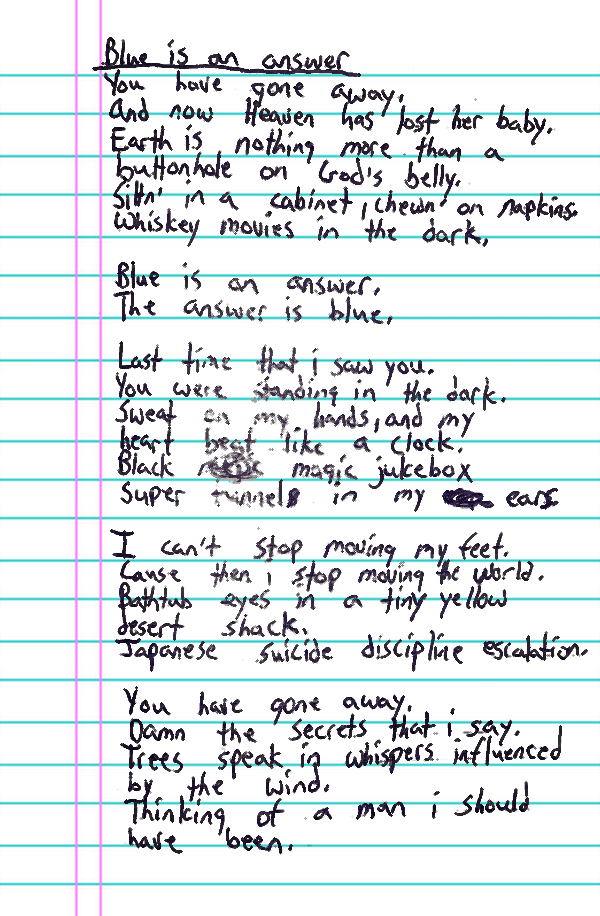 Blue is an answer
You have gone away.
And now Heaven has lost her baby.
Earth is nothing more than a
buttonhole on God's belly.
Sittn' in a cabinet, chewn' on napkins.
Whiskey movies in the dark.
Blue is an answer.
The answer is blue.
Last time that i saw you.
You were standing in the dark.
Sweat on my hands, and my
heart beat like a clock.
Black magic jukebox
Super tunnels in my ears
I can't stop moving my feet.
Cause then i stop moving the world.
Bathtub eyes in a tiny yellow
desert shack.
Japanese suicide discipline escalation.
You have gone away.
Damn the secrets that i say.
Trees speak in whispers influenced
by the wind.
Thinking of a man i should
have been.